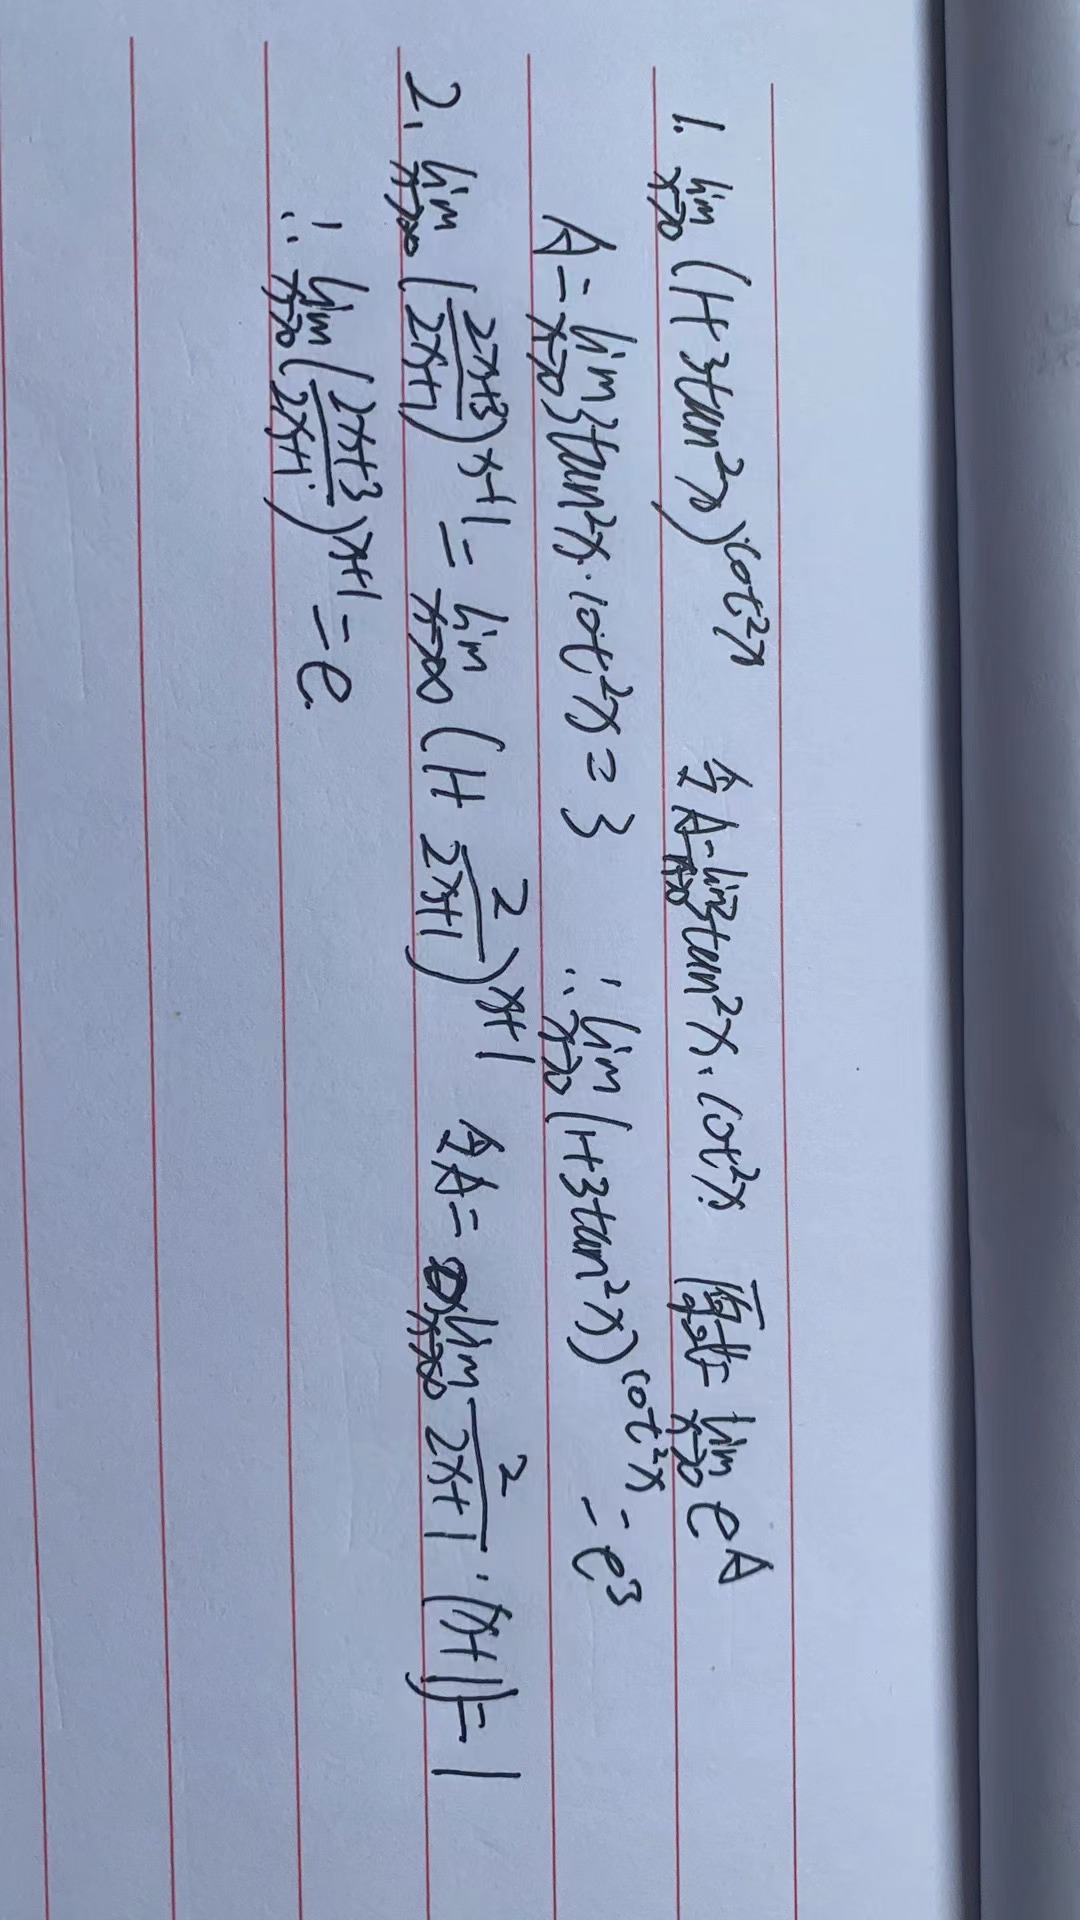 1. lim x→0 (1+3tan²x)^cot²x 令A=lim x→0 3tan²x·cot²x 原式=lim x→0 e^A
A=lim x→0 3tan²x·cot²x=3 ∴lim x→0 (1+3tan²x)^cot²x=e³
2. lim x→∞ (2x+3/2x+1)^x+1=lim x→∞ (1+2/2x+1)^x+1 令A=lim x→∞ 2/2x+1·(x+1)=1
∴lim x→∞ (2x+3/2x+1)^x+1=e.